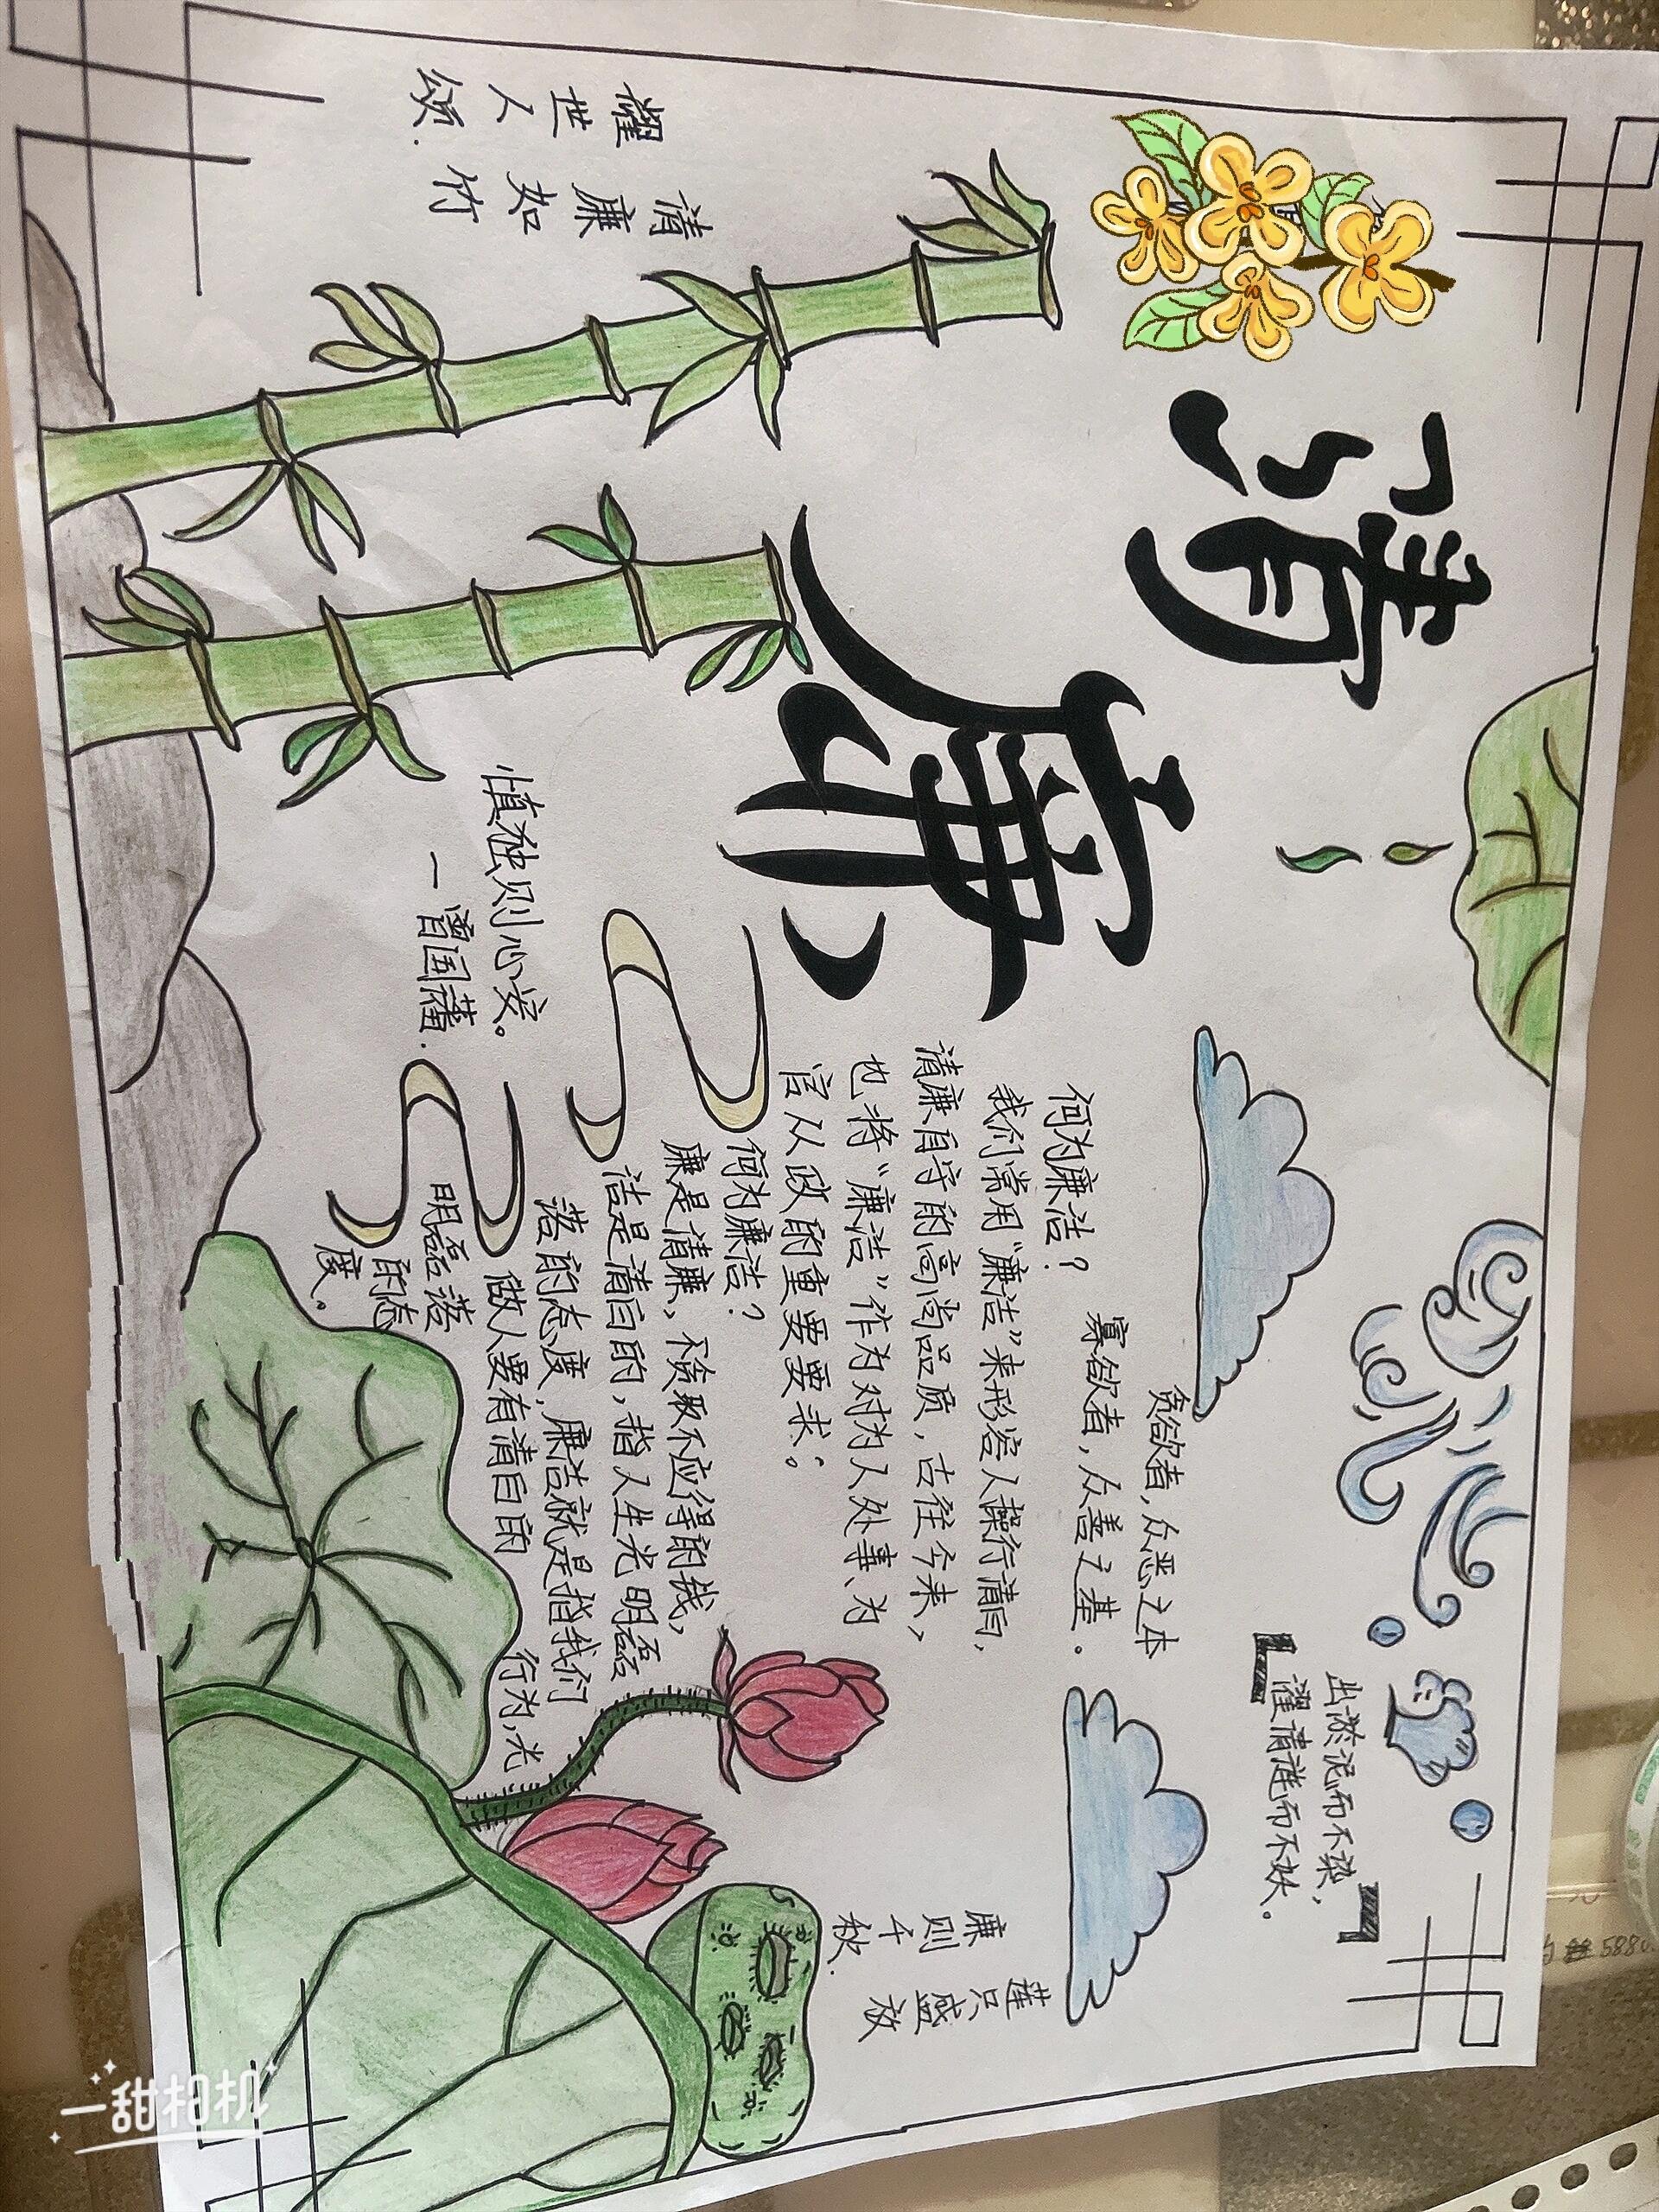 清廉
出淤泥而不染，
濯清涟而不妖。
贪欲者，众恶之本
寡欲者，众善之基.
何为廉洁？
我们常用“廉洁”来形容人操行清白，
清廉自守的高尚品质，古往今来，
也将“廉洁”作为对为人处事、为
官从政的重要要求。
何为廉洁？
廉是清廉，不贪取不应得的钱，
洁是清白的，指人生光明磊
落的态度，廉洁就是指我们
做人要有清白的行为，光
明磊落
的态
度。
清廉如竹
耀世人颂.
慎独则心安。
一曾国藩.
莲只盛放
廉则千秋.
一甜相机